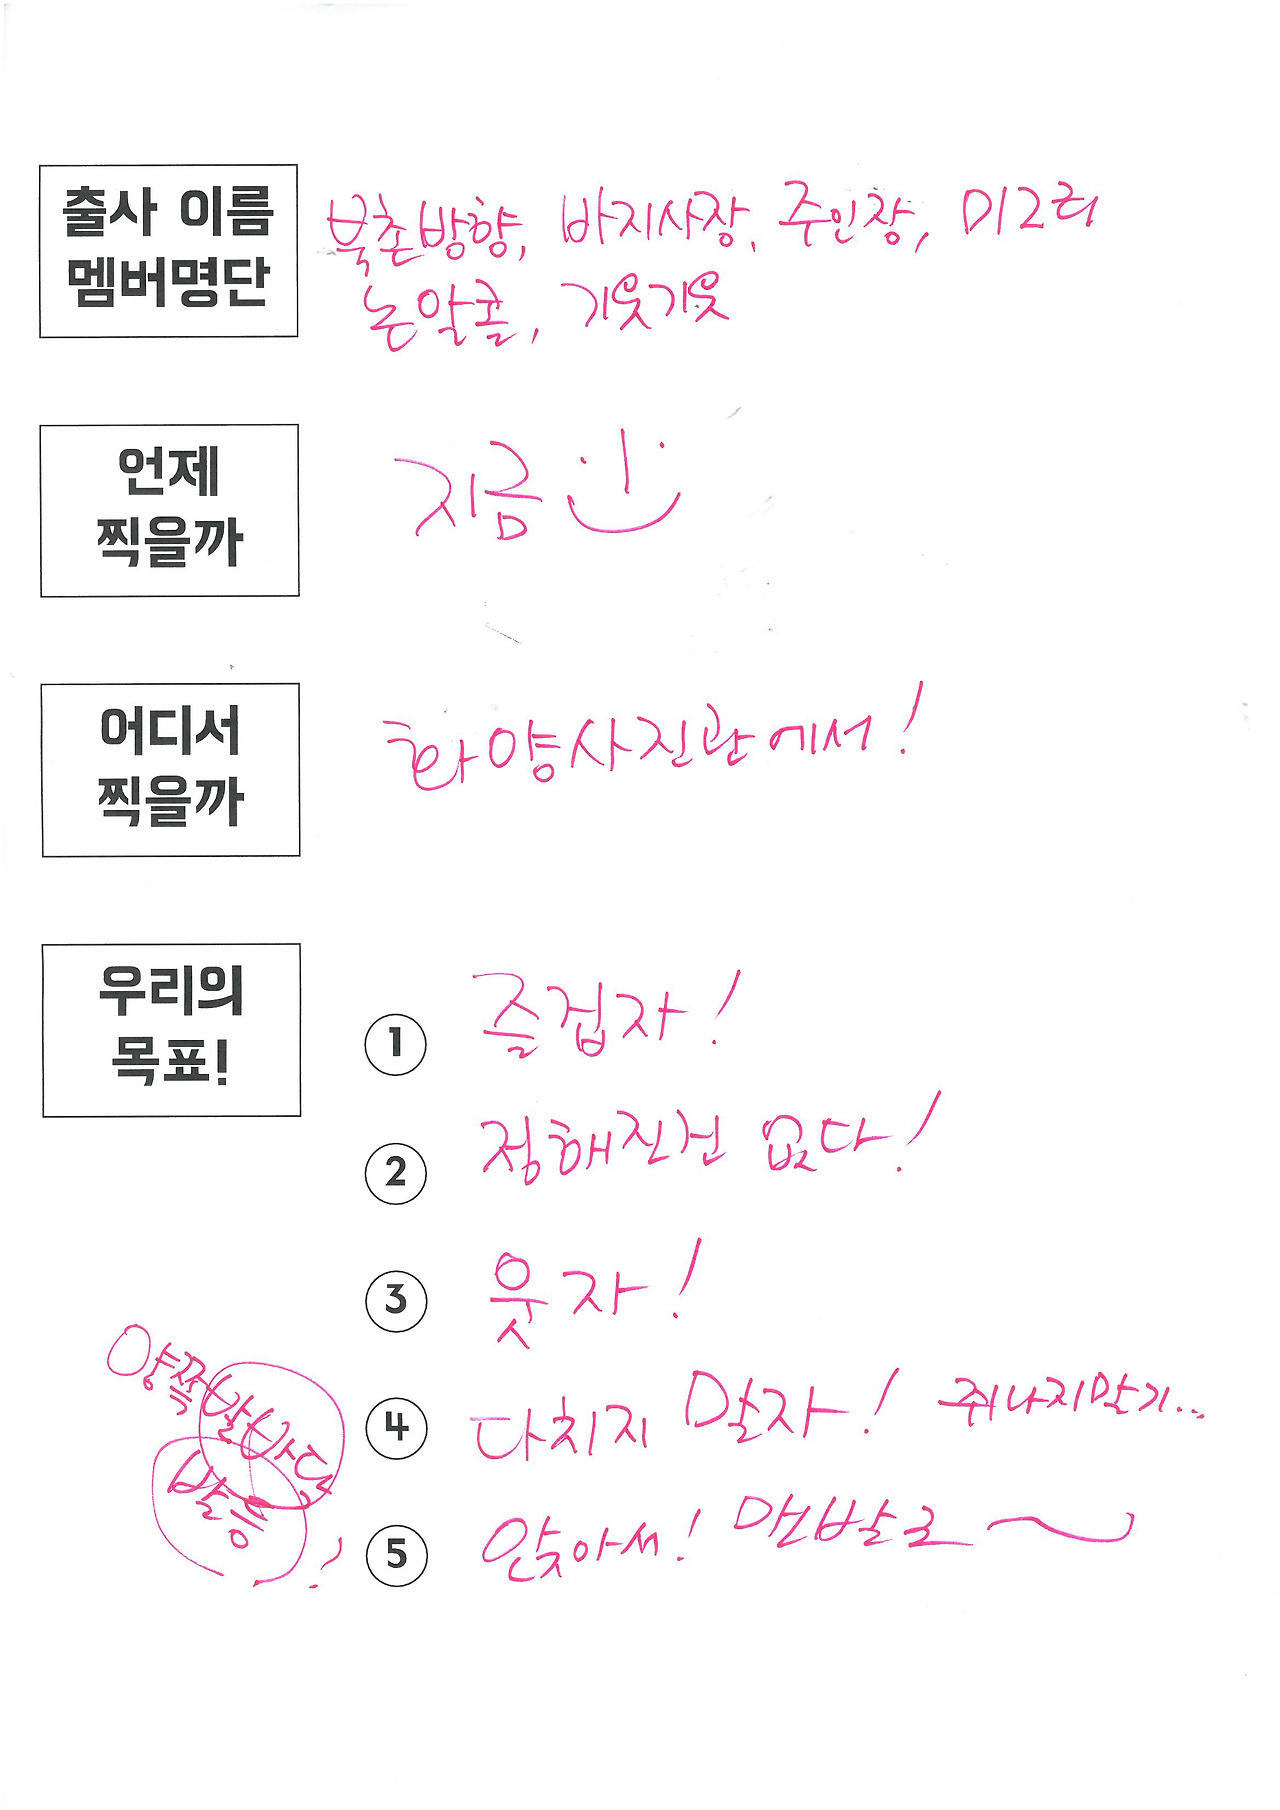 출사 이름
멤버명단
북촌방향, 바지사장, 주인장, 미그리
논알콜, 기웃기웃
언제
찍을까
지금
어디서
찍을까
화양사진관에서!
우리의
목표!
1 즐겁자!
2 정해진건 없다!
3 웃자!
4 다치지 말자! 쥐나지말기...
5 앉아서! 맨발로~
양쪽발바닥
발등